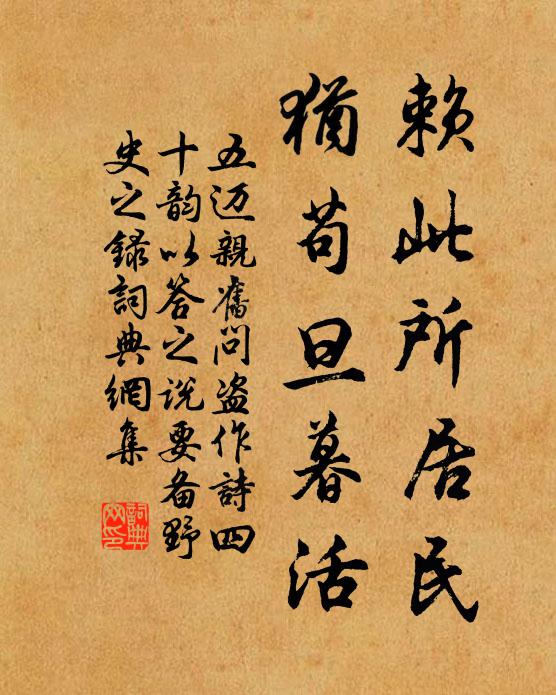 賴此所居民
猶苟旦暮活
五迈親舊問盗作詩四
十韵以答之说要备野
史之録詞典網集
詞典网印